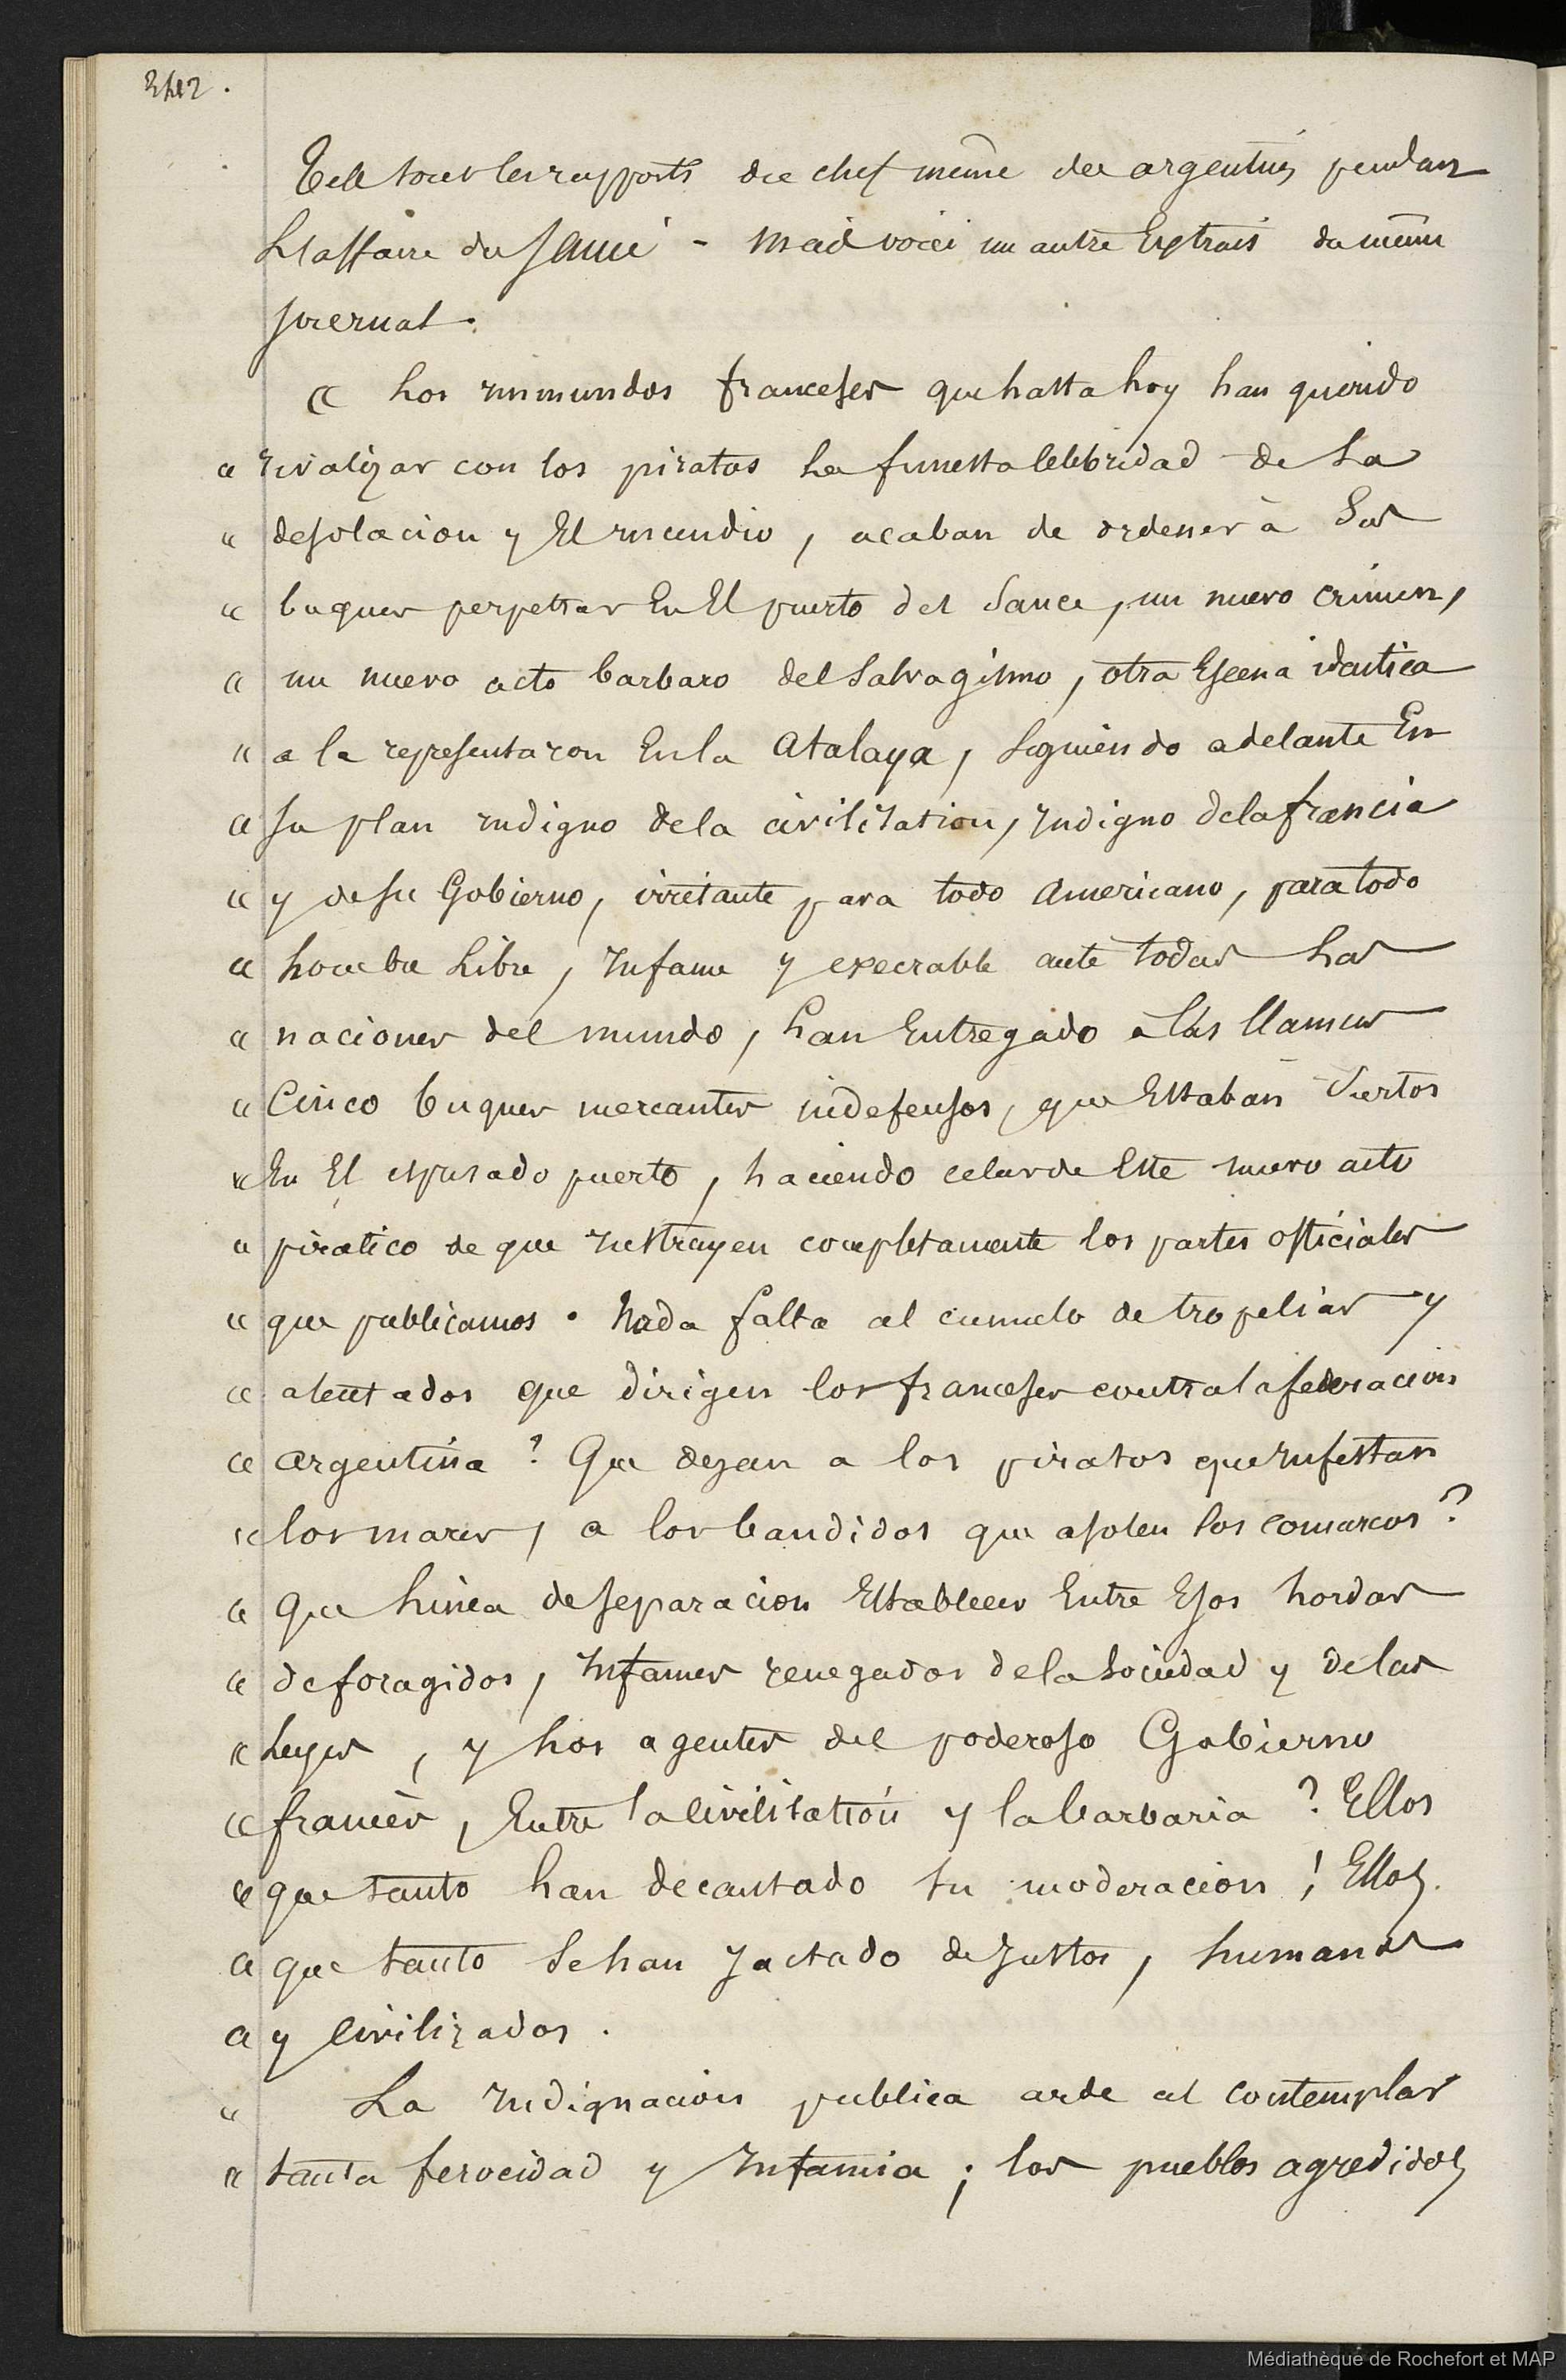 242.
Tels sont les rapports du chef même des argentins pendant
L'affaire du Sauce - mais voici un autre Extrait du même
journal.
« Los inmundos franceses que hasta hoy han querido
« rivalizar con los piratas la funesta celebridad de La
« desolacion y El incendio, acaban de ordener à Sus
« buques perpetrar En El puerto del Sauce, un nuevo crimen,
« un nuevo acto barbaro del Salvagismo, otra Escena identica
« a la representaron En la Atalaya, Siguiendo adelante En
« Su plan indigno de la civilisation, indigno de la francia
« y de su Gobierno, irritante para todo Americano, para todo
« hombre Libre, Infame y execrable ante todas Las
« naciones del mundo, han Entregado a las llamas
« Cinco buques mercantes indefensos, que Estaban Surtos
« En El espresado puerto, haciendo alarde Este nuevo acto
« piratico de que instruyen completamente los partes officiales
« que publicamos. Nada falta al cumulo de tropelias y
« atentados que dirigen los franceses contra la federacion
« argentina ? Que dejan a los piratas que infestan
« los mares, a los bandidos que asolen las comarcas ?
« Que Linea de separacion Establecer Entre Esas hordas
« de foragidos, Infames renegados de la Sociedad y de las
« Leyes, y Los agentes del poderoso Gobierno
« francès, Entre la civilisatión y la barbaria ? Ellos
« que tanto han decantado su moderacion ! Ellos
« que tanto Se han jactado de justos, humanos
« y civilizados.
« La Indignacion publica arde al contemplar
« tanta ferocidad y Infamia ; los pueblos agredidos
Médiathèque de Rochefort et MAP